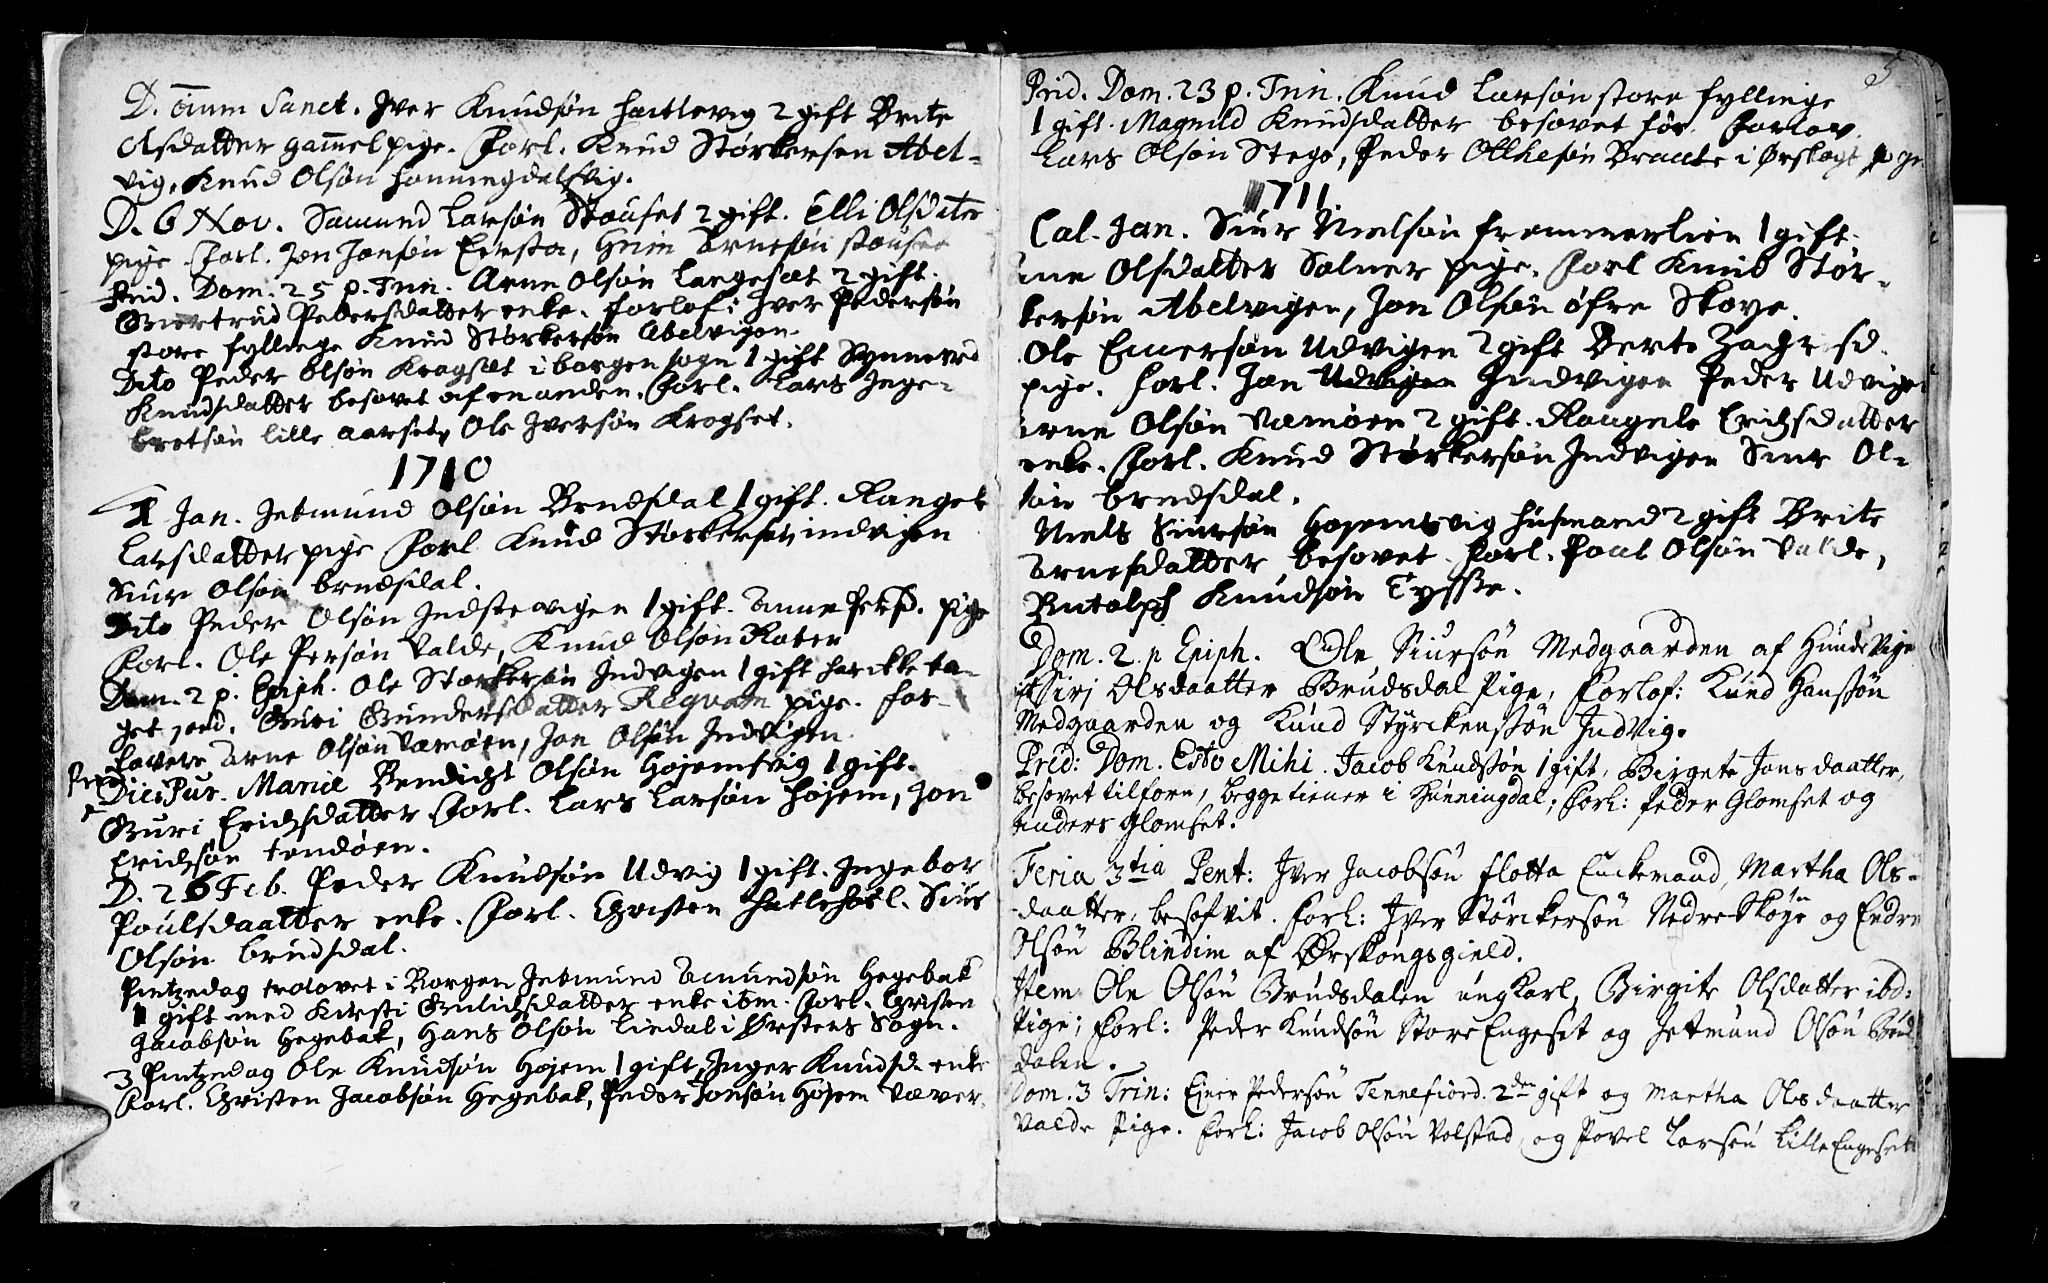 D. oium Sanct. Iver Knudsøn hattlevig 2 gift Brite
Olsdatter gammel pige. Forl. Knud Størkersen Abel-
vig, Knud Olsøn honningdalsvig.
D. 6 Nov. Samund Larsøn Stouset 2 gift. Elli Olsdater
pige. Forl. Jon Jonsøn Grim Arnesøn stouset
Prid. Dom. 25 p. Trin. Arne Olsøn Langesæt 2 gift.
Giertrud Pedersdatter enke. forlof: Iver Pedersøn
store fyllinge Knud Størkersøn Abelvigen.
Dito Peder Olsøn Kragsæt i borgen sogn 1 gift Synneved
Knudsdatter besovet af en anden. Forl. Lars Inge-
bretsøn lille aarset, Ole Iversøn Krogset.
1710
1 Jan. Jetmund Olsøn Brudsdal 1 gift. Rangel
Larsdatter pige Forl Knud Størkersøn indvigen
Siur Olsøn brudsdal.
Dito Peder Olsøn Indstevigen 1 gift. Anne Persd. pige
Forl. Ole Persøn Valde, Knud Olsøn
Dom. 2 p. Epiph. Ole Størkersøn Indvigen 1 gift har ikke ta-
get jord. Guri Gundersdatter pige. for-
lovere Arne Olsøn Vamøen, Jon Olsøn Indvigen
Diei Pur. Mariæ Bendicht Olsøn Hojemsvig 1 gift.
Guri Erichsdatter Forl. Lars Larsøn højem, Jon
Erichsøn tendøen.
D. 26 Feb. Peder Knudsøn Udvig 1 gift. Ingebor
Poulsdaatter enke. Forl. Christen hatlehoel. Siur
Olsøn brudsdal.
Pintzedag trolovet i Borgen Jetmund Amundsøn Hegebak
1 gift med Kirsti Gulichsdatter enke ibm. Forl. Christen
Jacobsøn Hegebak, Hans Olsøn liedal i Ørstens Sogn.
3 Pintzedag Ole Knudsøn Hojem 1 gift, Inger Knudsd. enke
Forl. Christen Jacobsøn Hegebak, Peder Jonsøn Højem

5
Prid. Dom. 23 p. Trin. Knud Larsøn store fyllinge
1 gift. Magnild Knudsdatter besovet før. Forlov.
Lars Olsøn Stege, Peder Olthesøn Braute i Ørskogs
1711
Cal. Jan. Siur Nielsøn frommerlien 1 gift.
Olsdatter Solner pige. Forl Knud Stør-
kersøn Abelvigen, Jon Olsøn øfre Skoye.
Ole Einersøn Udvigen 2 gift Berte
pige. Forl. Jon Indvigen Peder Udvigen
Arne Olsøn Vamøen 2 gift. Rangele Erichsdatter
enke. Forl. Knud Størkersøn Indvigen Siur Ol-
søn brudsdal.
Niels Siursøn Hojemsvig husmand 2 gift Brite
Arnesdatter besovet. Forl. Poul Olsøn Valde,
Rutolph Knudsøn Tysse.
Dom. 2. p Epiph. Ole Siursøn Medgaarden af Hundevige
Sirj Olsdaatter Brudsdal Pige, Forlof: Kund Hanssøn
Medgaarden og Kund Styrckenssøn Indvig.
Prid: Dom. Esto Mihi. Jacob Kundssøn 1 gift, Birgete Jonsdaatter,
besovet tilforn, begge tiener i Hunningdal; Forl: Peder Glomset og
Anders Glomset.
Feria 3tia Pent: Iver Jacobsøn flotta Enckemand, Martha Ols-
daatter, besofvit. Forl: Iver Størckersøn Nedre Skoye og Endre
Olsøn Blindim af Ørskongsgield.
Item Ole Olsøn Brudsdalen ungkarl, Birgite Olsdatter ibd:
Pige; Forl: Peder Kundsøn Store Engeset og Jetmund Olsøn Brud
dalen.
Dom. 3 Trin: Einer Pedersøn Tennefiord. 2den gift og Martha Olsdaatter
Valde Pige. Forl: Jacob Olsøn Volstad og Povel Larsøn Lille Engeset